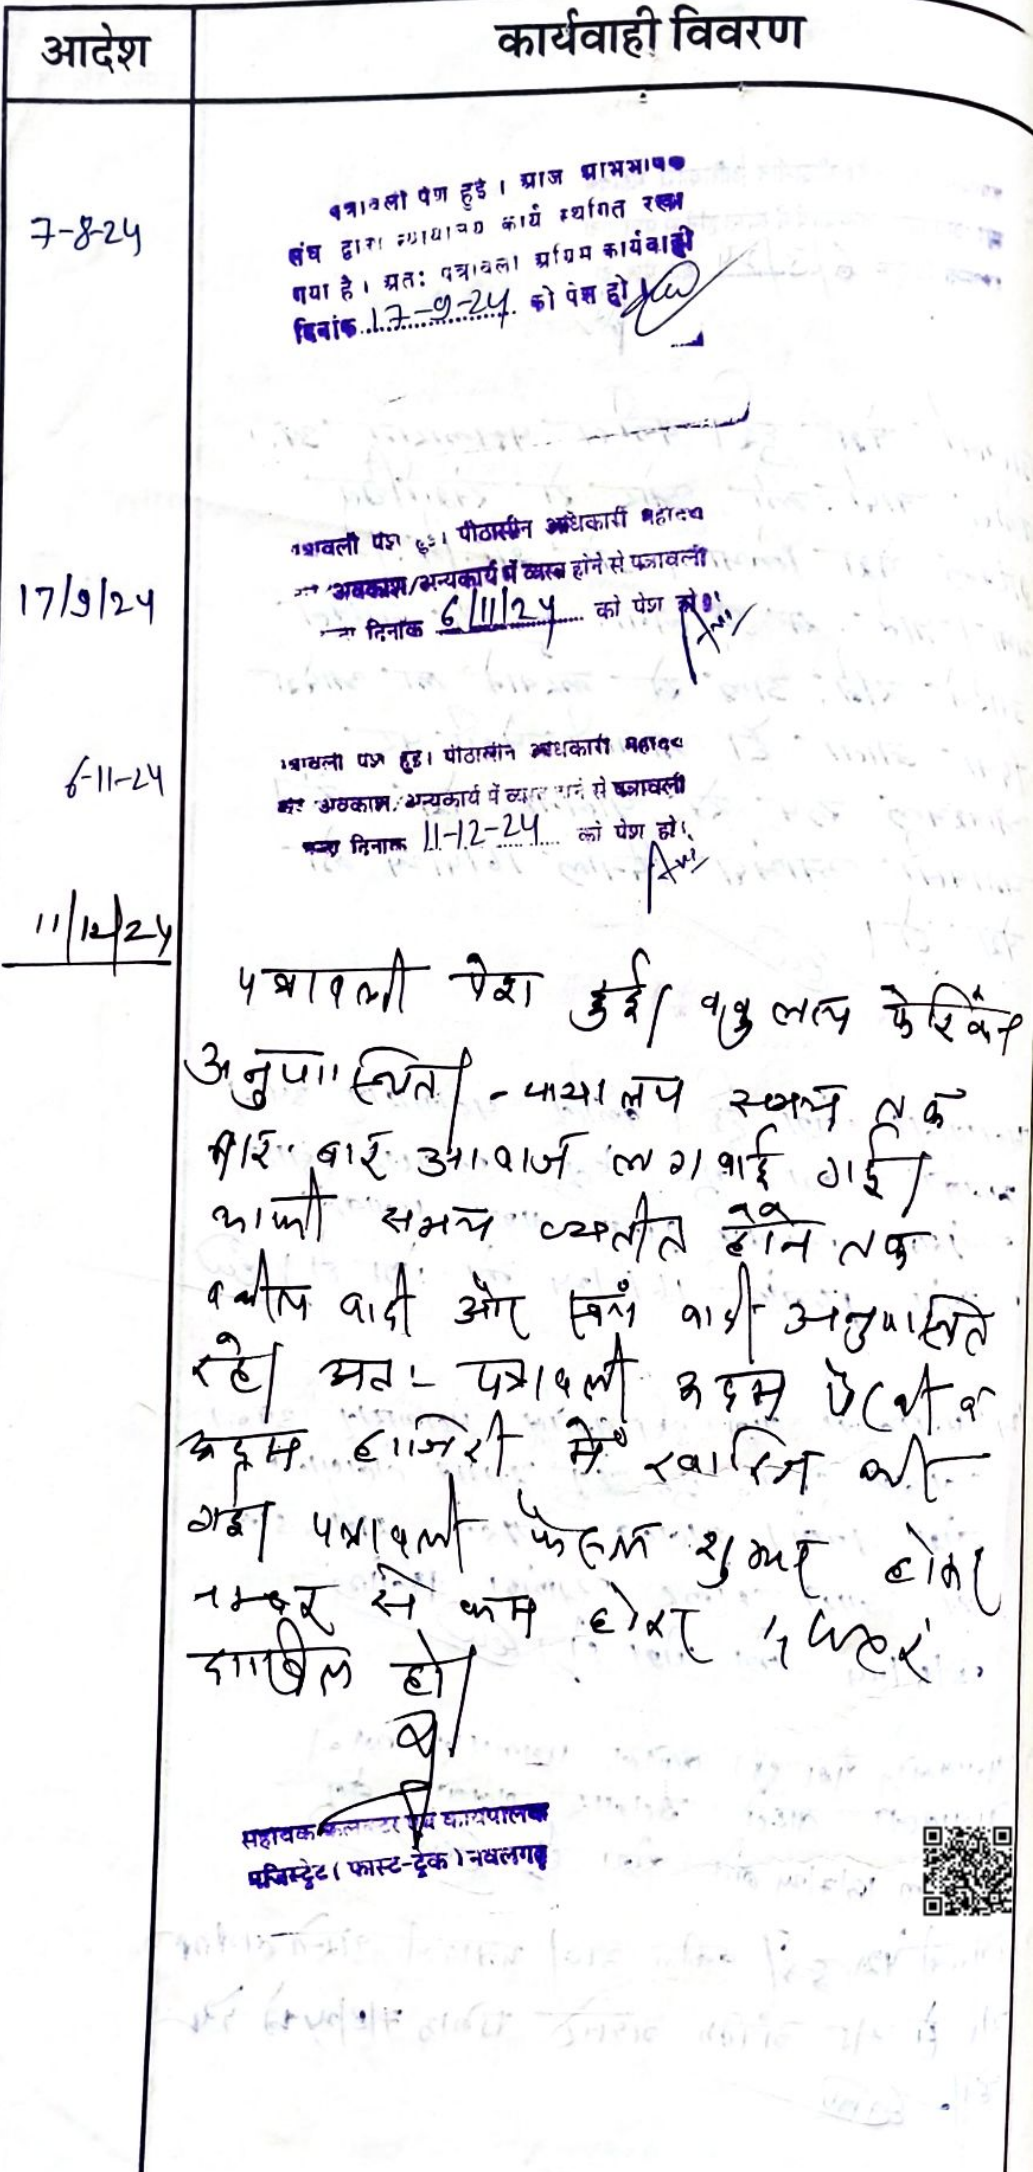 आदेश
कार्यवाही विवरण
7-8-24
पत्रावली पेश हुई । आज अभिभाषक
संघ द्वारा न्यायालय कार्य स्थगित रखा
गया है । अतः पत्रावली अग्रिम कार्यवाही
दिनांक 17-9-24 को पेश हो
17/9/24
पत्रावली पेश हुई। पीठासीन अधिकारी महोदय
अवकाश/अन्यकार्य में व्यस्त होने से पत्रावली
दिनांक 6/11/24 को पेश हो।
6-11-24
पत्रावली पेश हुई। पीठासीन अधिकारी महोदय
के अवकाश/अन्यकार्य में व्यस्त होने से पत्रावली
दिनांक 11-12-24 को पेश हो।
11/12/24
पत्रावली पेश हुई। वकुलाय फेरिकेन
अनुपस्थित। न्यायालय समय तक
बार बार आवाजें लगवाई गई।
काफी समय व्यतीत होने तक
वकील वादी और स्वयं वादी अनुपस्थित
रहे। अतः पत्रावली अदम पैरवी व
अदम हाजिरी में खारिज की
गई। पत्रावली फैसल शुमार होकर
नम्बर से कम होकर दफ्तर
दाखिल हो।
सहायक कलक्टर एवं कार्यपालक
मजिस्ट्रेट (फास्ट-ट्रेक) नवलगढ़